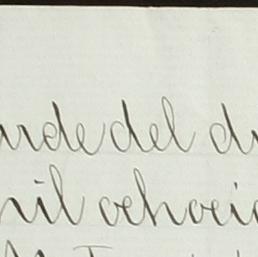 arde del d
mil ochoci